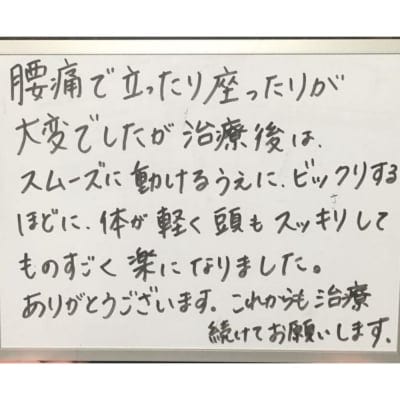 腰痛で立ったり座ったりが
大変でしたが治療後は、
スムーズに動けるうえに、ビックリする
ほどに、体が軽く頭もスッキリして
ものすごく楽になりました。
ありがとうございます。これからも治療
続けてお願いします。